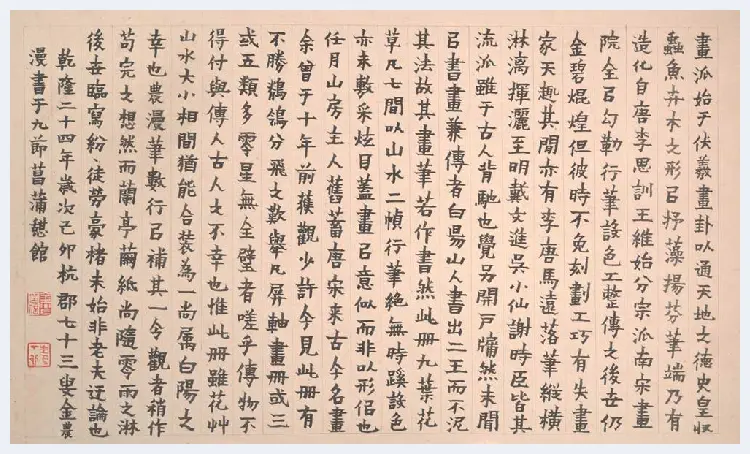 畫派始于伏羲畫卦以通天地之德史皇收
蟲魚卉木之形㠯抒藻揚芬筆端乃有
造化自唐李思訓王維始分宗派南宋畫
院全㠯勾勒行筆設色工整傳之後世仍
金碧焜煌但彼時不免刻劃工巧有失畫
家天趣其間亦有李唐馬遠落筆縱橫
淋漓揮灑王明戴文進吳小仙謝時臣皆其
流派雖于古人背馳也覺另開戶牖然未聞
㠯書畫兼傳者白陽山人書出二王而不泥
其法故其畫筆若作書然此冊九葉花
草凡七間以山水二幀行筆絕無時蹊設色
亦未敷采炫目蓋畫㠯意似而非以形侣也
任月山房主人舊蓄唐宋來古今名畫
余曾于十年前獲觀少許今見此冊有
不勝鶺鴒分飛之歎舉凡屏軸畫冊或三
或五類多零星無全璧者嗟乎傳物不
得付與傳人古人之不幸也惟此冊雖花艸
山水大小相間猶能合裝為一尚属白陽之
幸也農漫筆數行㠯補其一令觀者稍作
苟完之想然而蘭亭繭紙尚隨零雨之淋
後世臨寫紛〻徒勞豪楮未始非老夫迂論也
乾隆二十四年歲次己卯杭郡七十三叟金農
漫書于九節菖蒲憇館